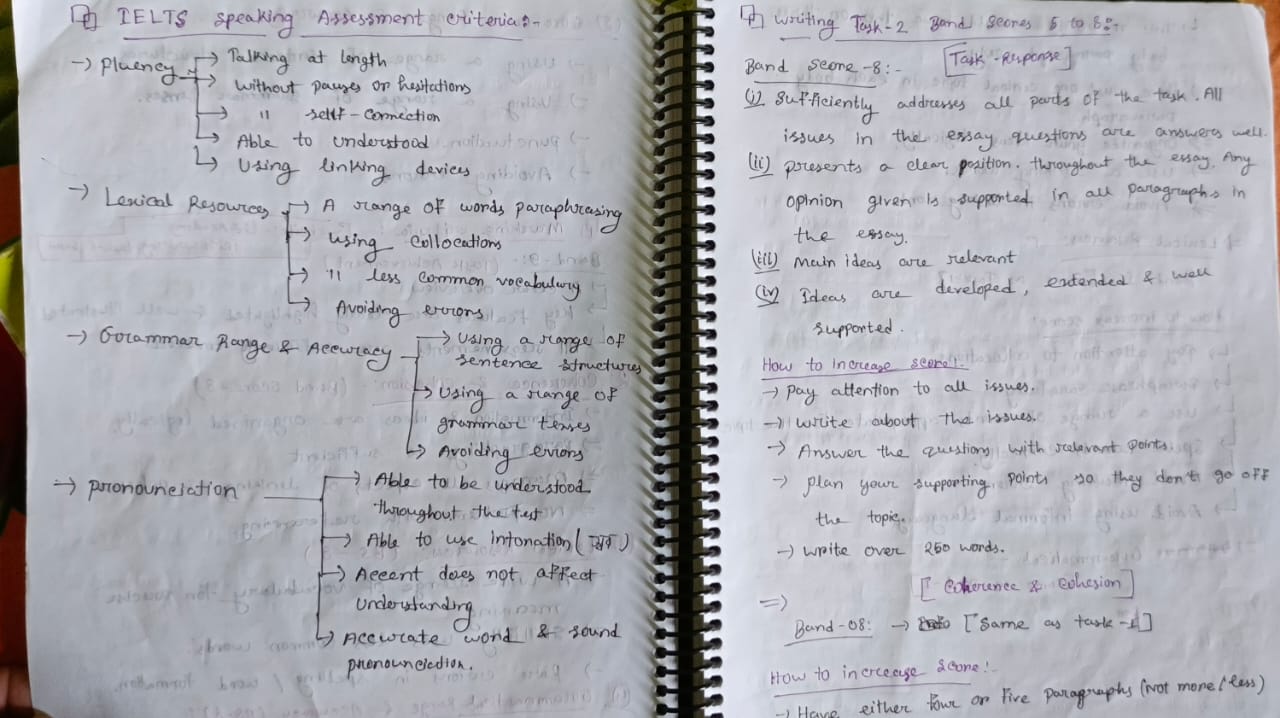 IELTS Speaking Assessment criteria:-
→ Fluency → Talking at length
→ without pauses or hesitations
→ " self-connection
→ Able to understood
→ Using linking devices
→ Lexical Resources → A range of words paraphrasing
→ using collocations
→ " less common vocabulary
→ Avoiding errors
→ Grammar Range & Accuracy → Using a range of
sentence structures
→ Using a range of
grammar tenses
→ Avoiding errors
→ pronounciation → Able to be understood
throughout the test
→ Able to use intonation (সুর)
→ Accent does not affect
understanding
→ Accurate word & sound
pronounciation.
Writing Task-2 Band Scores 5 to 8:-
[Task-Response]
Band Score-8:-
(i) Sufficiently addresses all parts of the task. All
issues in the essay questions are answers well.
(ii) presents a clear position. throughout the essay. Any
opinion given is supported in all paragraphs in
the essay.
(iii) Main ideas are relevant
(iv) Ideas are developed, extended & well
supported.
How to increase score!-
→ Pay attention to all issues.
→ write about the issues.
→ Answer the questions with relevant points.
→ plan your supporting points so they don't go off
the topic.
→ write over 250 words.
[Coherence & Cohesion]
⇒
Band-08: → [Same as task-1]
How to increcase Score!-
→ Have either four or five paragraphs (Not more/less)